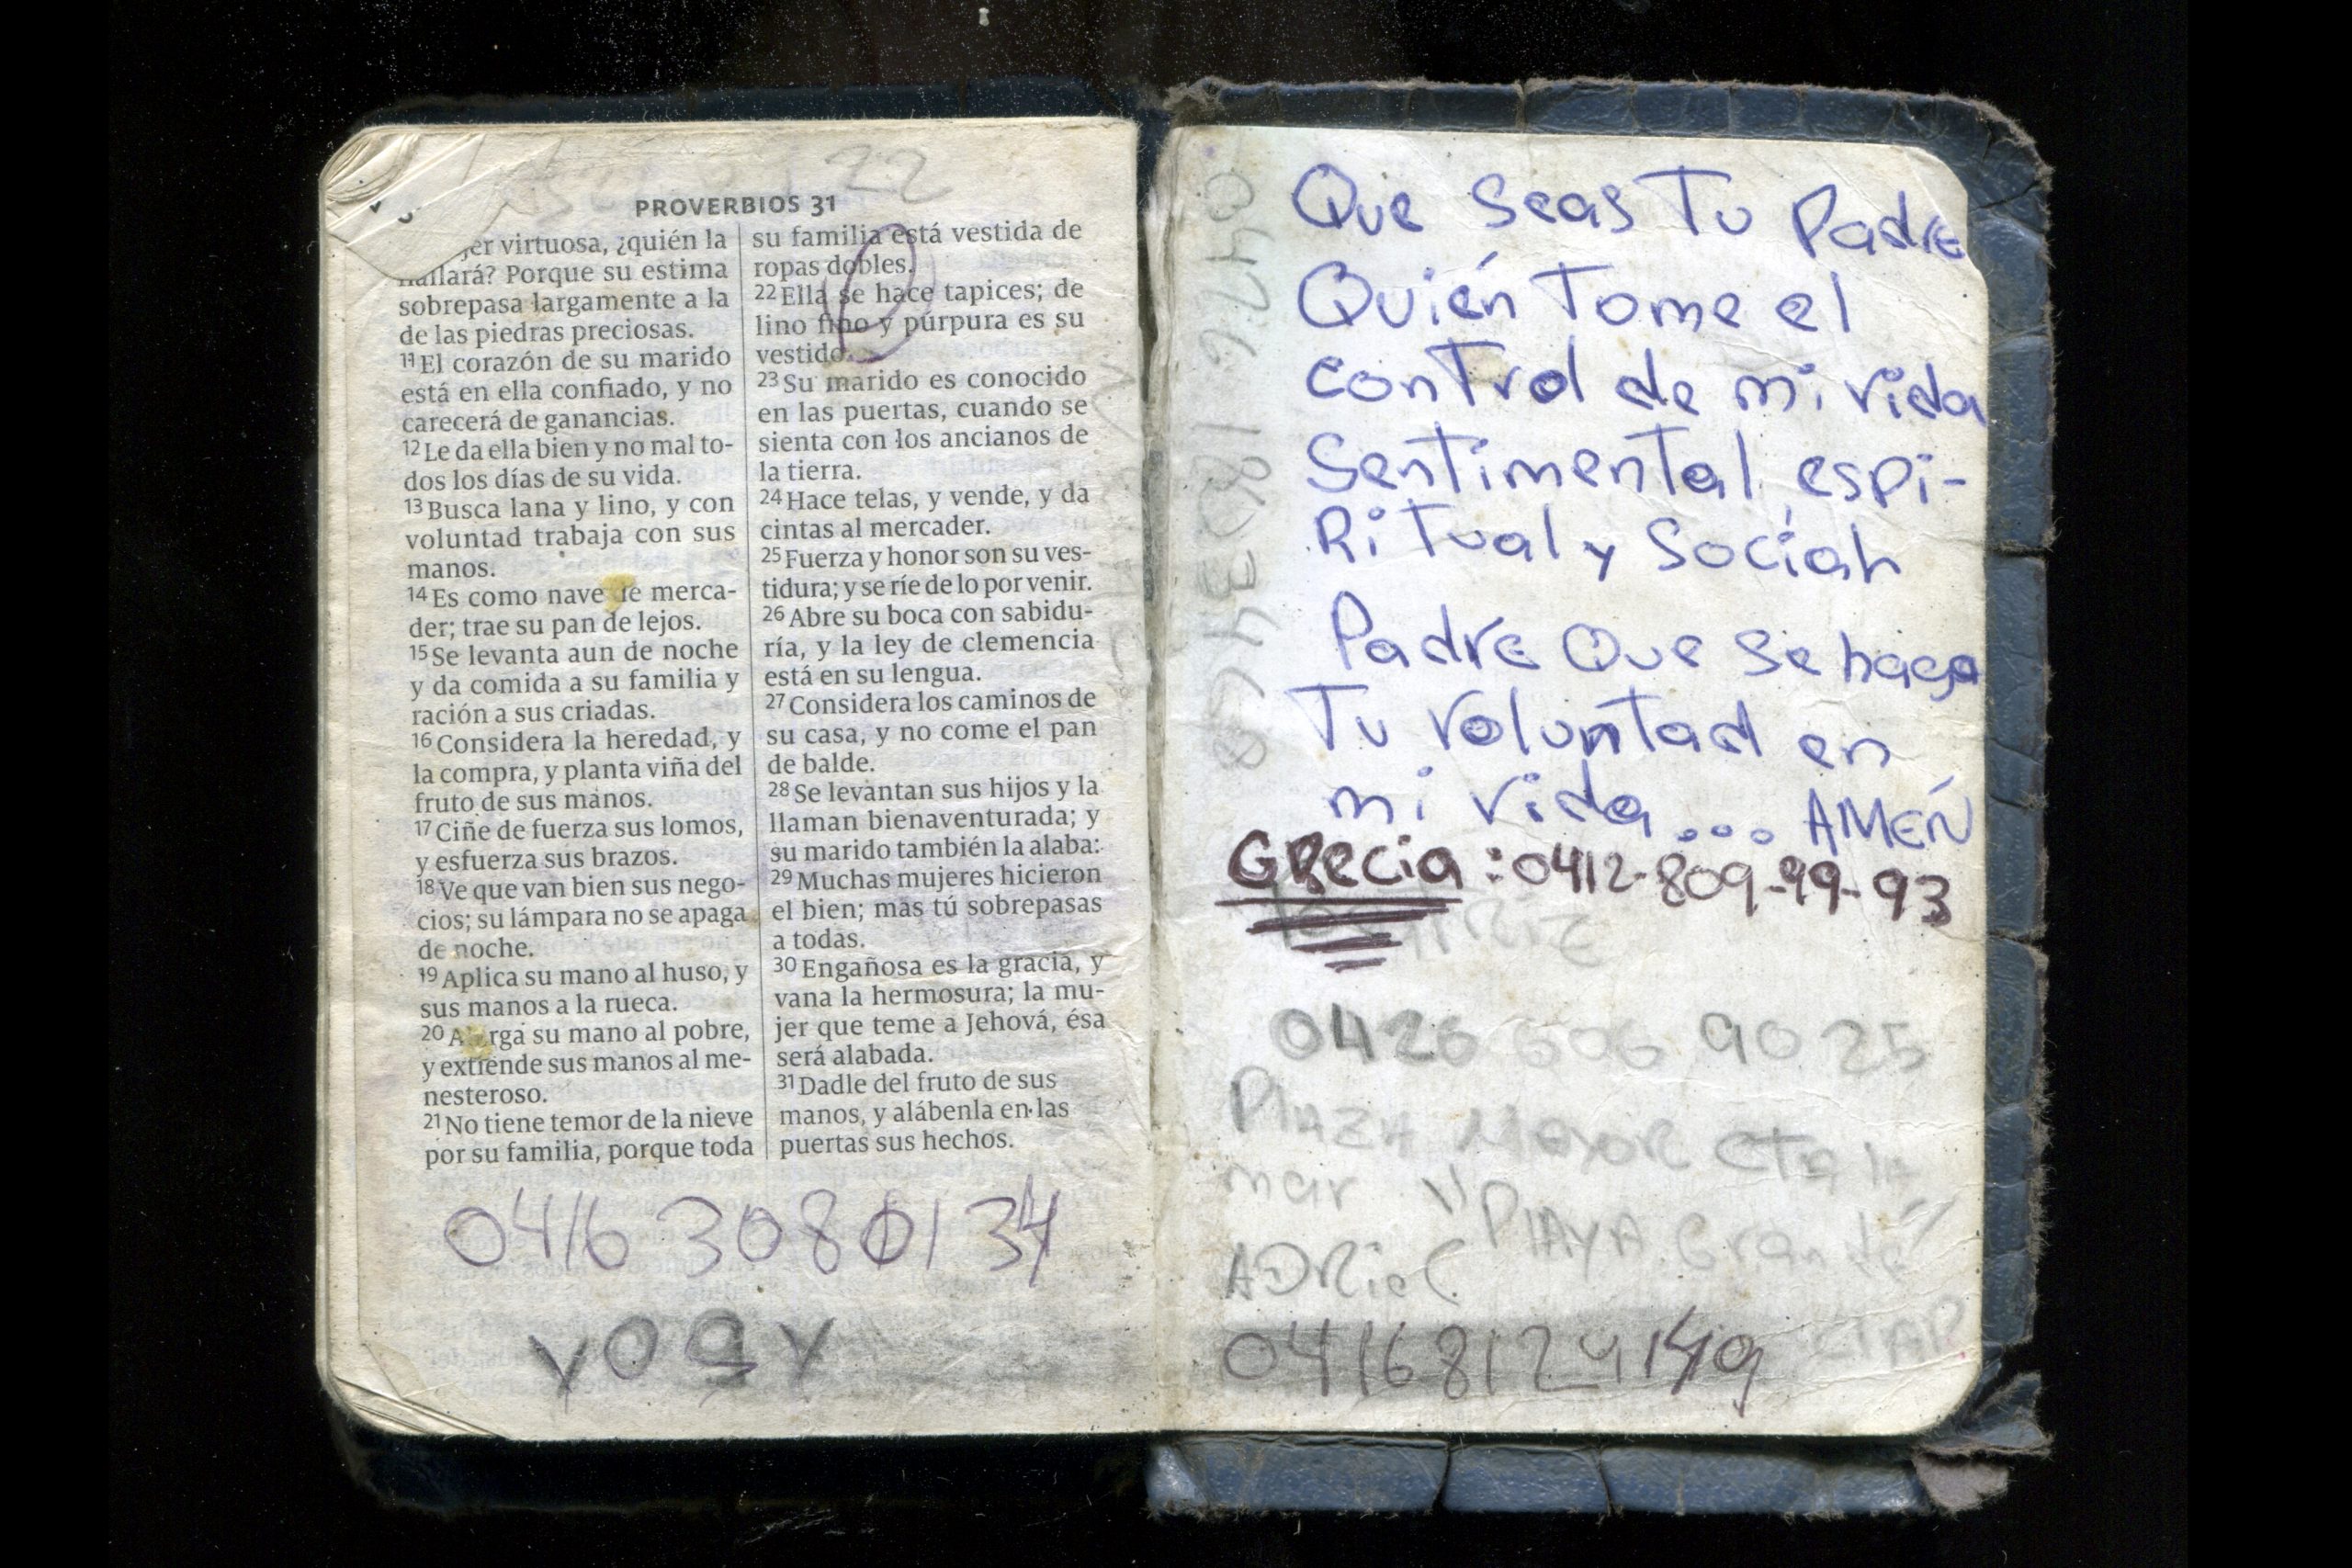 PROVERBIOS 31
virtuosa, ¿quién la
hallará? Porque su estima
sobrepasa largamente a la
de las piedras preciosas.
11 El corazón de su marido
está en ella confiado, y no
carecerá de ganancias.
12 Le da ella bien y no mal to-
dos los días de su vida.
13 Busca lana y lino, y con
voluntad trabaja con sus
manos.
14 Es como nave de merca-
der; trae su pan de lejos.
15 Se levanta aun de noche
y da comida a su familia y
ración a sus criadas.
16 Considera la heredad, y
la compra, y planta viña del
fruto de sus manos.
17 Ciñe de fuerza sus lomos,
y esfuerza sus brazos.
18 Ve que van bien sus nego-
cios; su lámpara no se apaga
de noche.
19 Aplica su mano al huso, y
sus manos a la rueca.
20 Alarga su mano al pobre,
y extiende sus manos al me-
nesteroso.
21 No tiene temor de la nieve
por su familia, porque toda
su familia está vestida de
ropas dobles.
22 Ella se hace tapices; de
lino fino y púrpura es su
vestido.
23 Su marido es conocido
en las puertas, cuando se
sienta con los ancianos de
la tierra.
24 Hace telas, y vende, y da
cintas al mercader.
25 Fuerza y honor son su ves-
tidura; y se ríe de lo por venir.
26 Abre su boca con sabidu-
ría, y la ley de clemencia
está en su lengua.
27 Considera los caminos de
su casa, y no come el pan
de balde.
28 Se levantan sus hijos y la
llaman bienaventurada; y
su marido también la alaba:
29 Muchas mujeres hicieron
el bien; mas tú sobrepasas
a todas.
30 Engañosa es la gracia, y
vana la hermosura; la mu-
jer que teme a Jehová, ésa
será alabada.
31 Dadle del fruto de sus
manos, y alábenla en las
puertas sus hechos.
0416 3080134
Que seas Tu Padre
Quién Tome el
control de mi vida
Sentimental, espi-
Ritual y Social
Padre Que se haga
Tu Voluntad en
mi vida... AMÉN
GRecia: 0412-809-99-93
0426 606 90 25
PlAZA Mayor
mar "PlAyA Grande"
ADRiel
04168124149